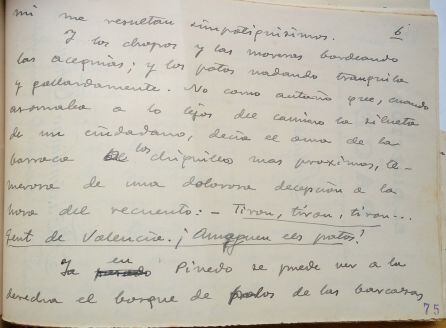 mi me resultan simpatiquísimos.
6
Y los chopos y las moreras bordeando
las acequias; y los patos nadando tranquila
y gallardamente. No como antaño que, cuando
asomaba a lo lejos del camino la silueta
de un ciudadano, decía el ama de la
barraca a los chiquillos mas proximos, te-
merosa de una dolorosa decepción a la
hora del recuento: - Tiron, tiron, tiron...
Gent de Valencia. ¡Amagueu els patos!
Ya en Pinedo se puede ver a la
derecha el bosque de palos de las barcazas
75